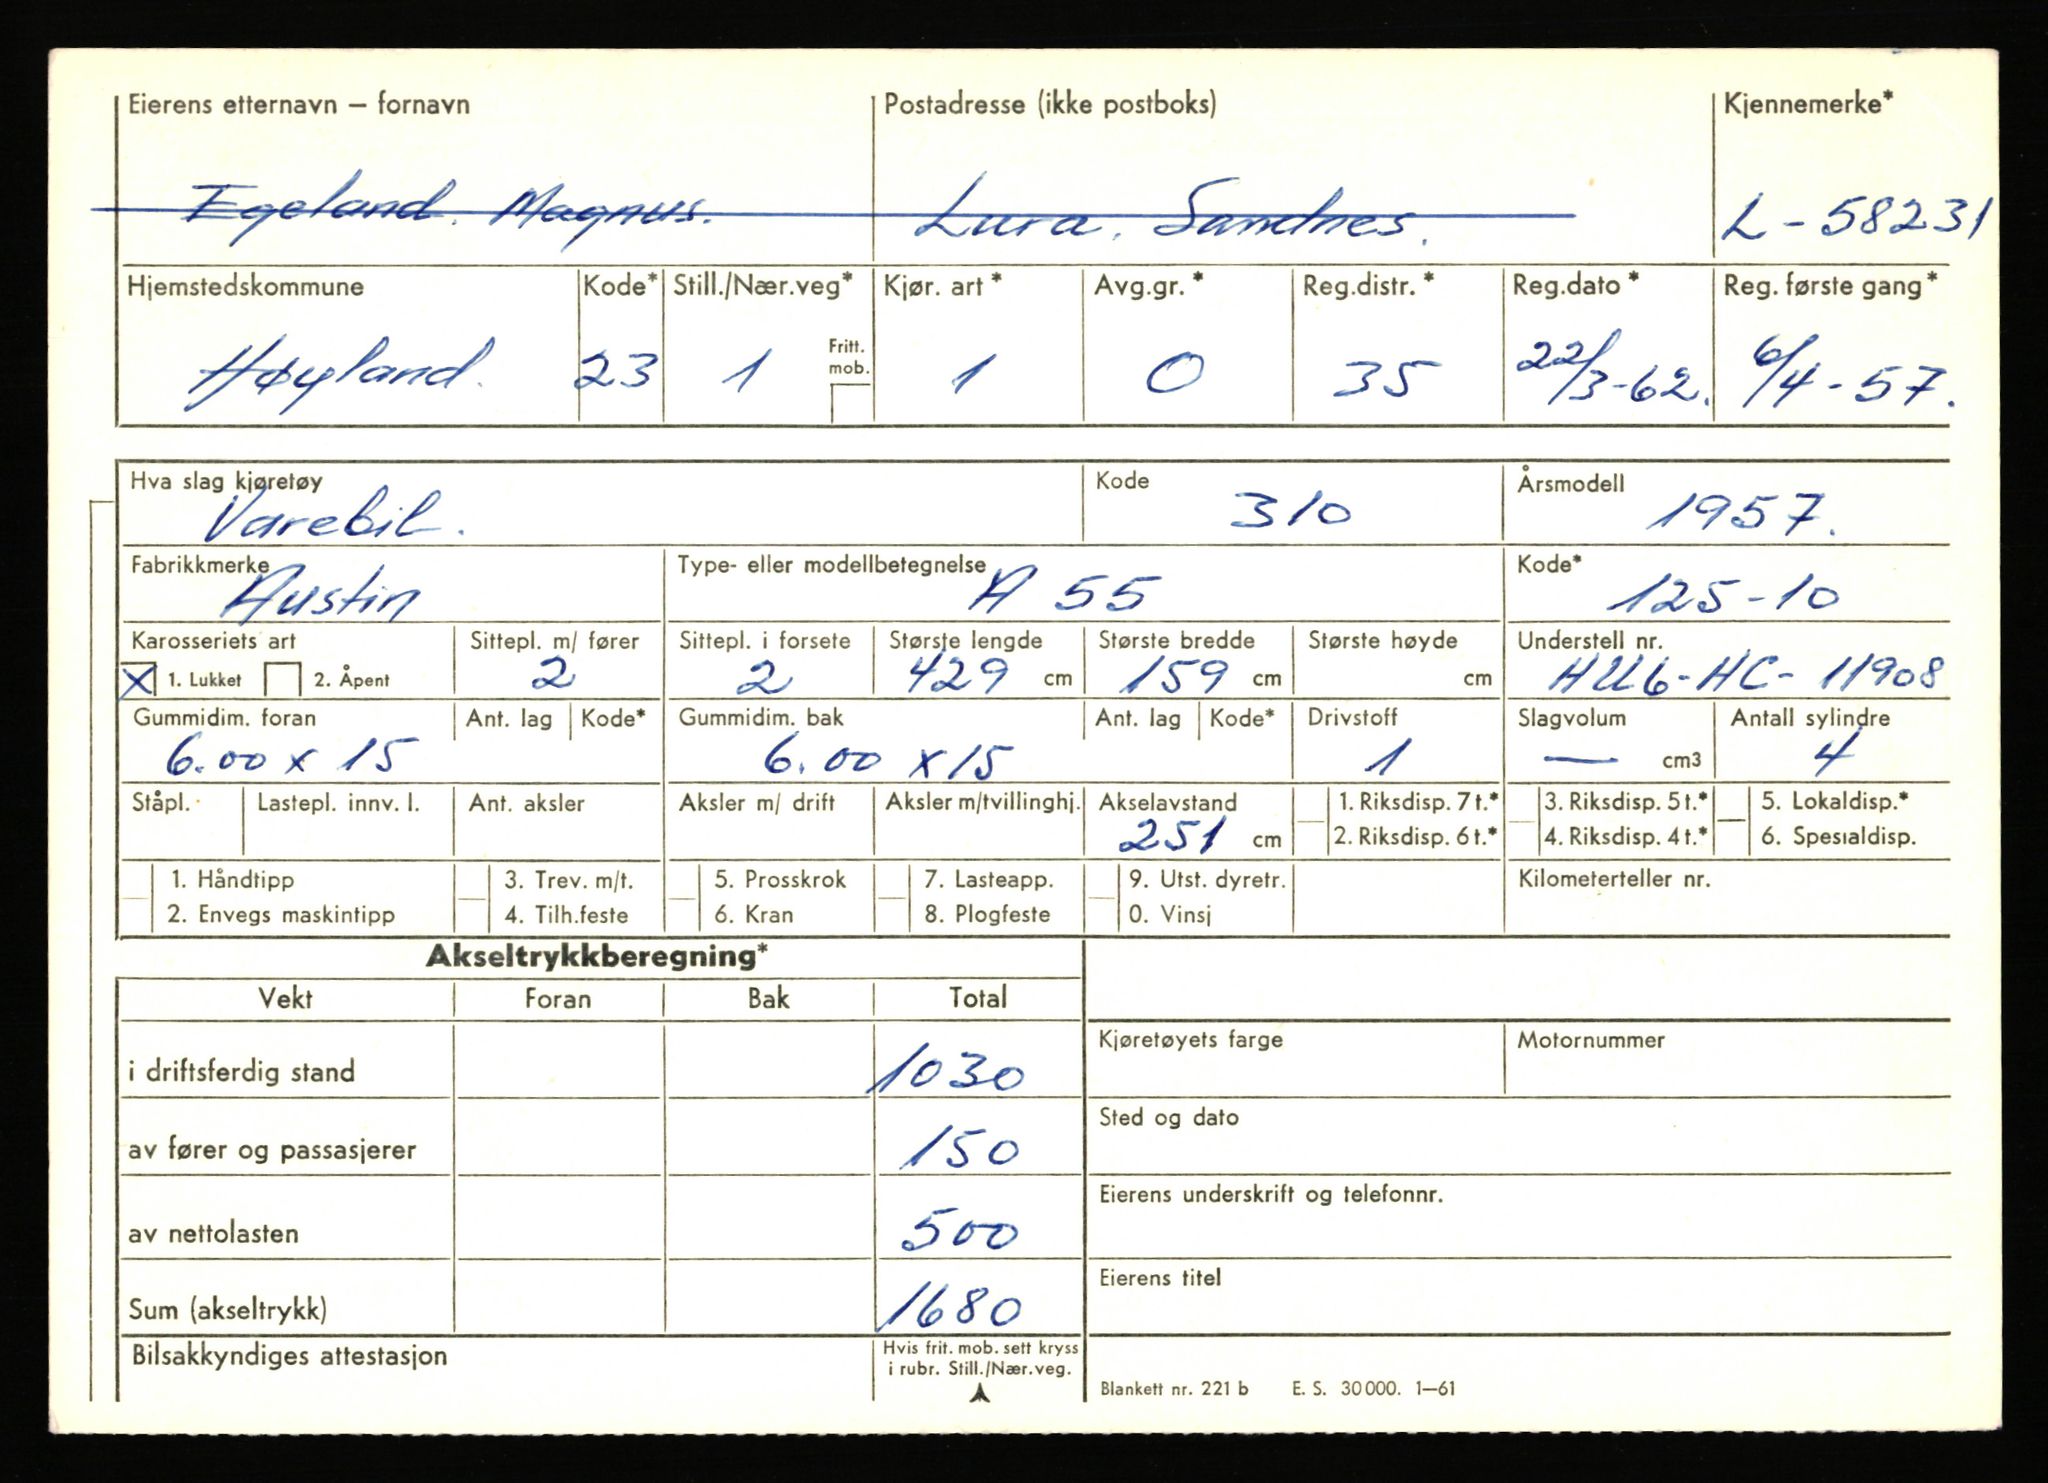 Eierens etternavn – fornavn Postadresse (ikke postboks) Kjennemerke*
Egeland. Magnus. Lura. Sandnes. L-58231
Hjemstedskommune Kode* Still./Nær.veg* Kjør. art* Avg.gr.* Reg.distr.* Reg.dato* Reg. første gang*
Fritt. mob.
Høyland. 23 1 1 0 35 22/3-62. 6/4-57.
Hva slag kjøretøy Kode Årsmodell
Varebil. 310 1957.
Fabrikkmerke Type- eller modellbetegnelse Kode*
Austin A 55 125-10
Karosseriets art Sittepl. m/ fører Sittepl. i forsete Største lengde Største bredde Største høyde Understell nr.
X 1. Lukket 2. Åpent 2 2 429 cm 159 cm cm HU6-HC-11908
Gummidim. foran Ant. lag Kode* Gummidim. bak Ant. lag Kode* Drivstoff Slagvolum Antall sylindre
6.00 x 15 6.00 x 15 1 — cm3 4
Ståpl. Lastepl. innv. l. Ant. aksler Aksler m/ drift Aksler m/tvillinghj. Akselavstand 1. Riksdisp. 7 t.* 3. Riksdisp. 5 t.* 5. Lokaldisp.*
251 cm 2. Riksdisp. 6 t.* 4. Riksdisp. 4 t.* 6. Spesialdisp.
1. Håndtipp 3. Trev. m/t. 5. Prosskrok 7. Lasteapp. 9. Utst. dyretr. Kilometerteller nr.
2. Envegs maskintipp 4. Tilh.feste 6. Kran 8. Plogfeste 0. Vinsj
Akseltrykkberegning*
Vekt Foran Bak Total
Kjøretøyets farge Motornummer
i driftsferdig stand 1030
Sted og dato
av fører og passasjerer 150
Eierens underskrift og telefonnr.
av nettolasten 500
Eierens titel
Sum (akseltrykk) 1680
Bilsakkyndiges attestasjon Hvis frit. mob. sett kryss
i rubr. Still./Nær.veg.
Blankett nr. 221 b E. S. 30 000. 1—61